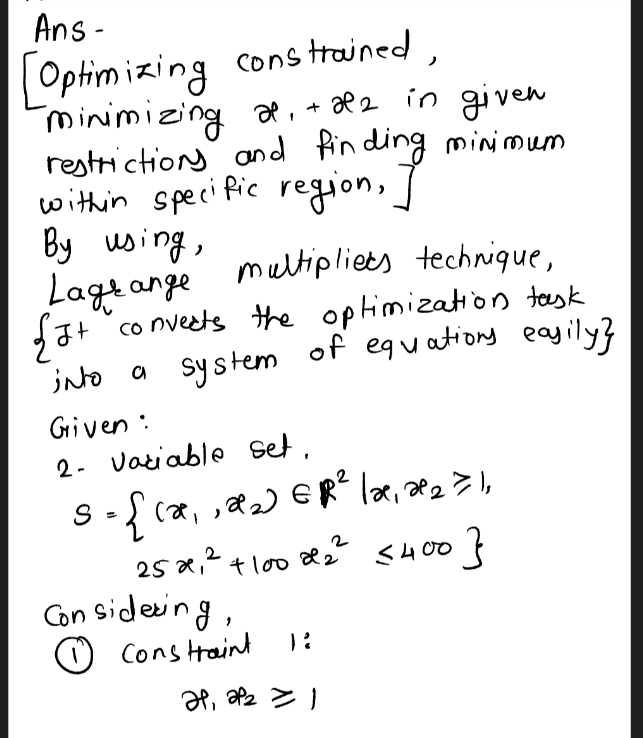 Ans -
[Optimizing constrained,
minimizing x₁ + x2 in given
restrictions and finding minimum
within specific region,]
By using,
Lagrange multipliers technique,
{It converts the optimization task
into a system of equations easily}
Given:
2- variable set.
S = {(x₁, x2) ∈ R² | x₁ x2 ≥ 1,
25 x₁² + 100 x2² ≤ 400}
Considering,
① Constraint 1:
x₁ x2 ≥ 1